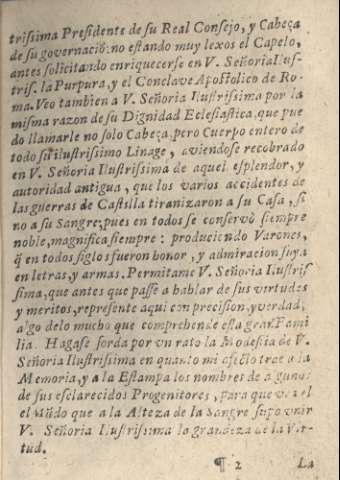 trissima Presidente de su Real Consejo, y Cabeça
de su governaciō: no estando muy lexos el Capelo,
antes solicitando enriquecerse en V. Señoria Ilus-
tris. la Purpura, y el Conclave Apostolico de Ro-
ma. Veo tambien a V. Señoria Ilustrissima por la
misma razon de su Dignidad Eclesiastica, que pue
do llamarle no solo Cabeça, pero Cuerpo entero de
todo su ilustrissimo Linage, aviendose recobrado
en V. Señoria Ilustrissima de aquel esplendor, y
autoridad antigua, que los varios accidentes de
las guerras de Castilla tiranizaron a su Casa, si
no a su Sangre; pues en todos se conservò siempre
noble, magnifica siempre: produciendo Varones,
q̄ en todos siglos fueron honor, y admiracion suya
en letras, y armas. Permitame V. Señoria Ilustris
sima, que antes que passe a hablar de sus virtudes
y meritos, represente aqui con precision, y verdad,
algo de lo mucho que comprehende esta gran Fami
lia. Hagase sorda por vn rato la Modestia de V.
Señoria Ilustrissima en quanto mi afecto trae a la
Memoria, y a la Estampa los nombres de algunos
de sus esclarecidos Progenitores, para que vea el
el Mūdo que a la Alteza de la Sangre supo vnir
V. Señoria Ilustrissima la grandeza de la Vir-
tud.
¶ 2 La